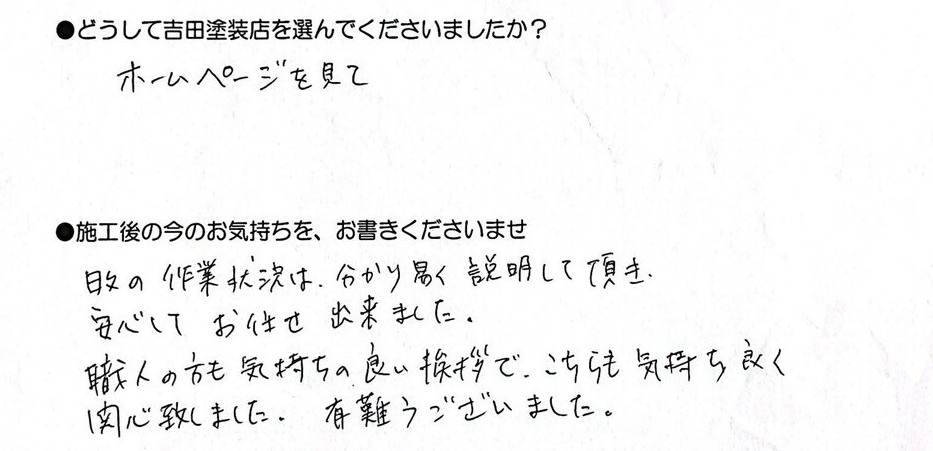 ●どうして吉田塗装店を選んでくださいましたか？
ホームページを見て
●施工後の今のお気持ちを、お書きくださいませ
日々の作業状況は、分かり易く説明して頂き、
安心してお任せ出来ました。
職人の方も気持ちの良い挨拶で、こちらも気持ち良く
関心致しました。有難うございました。